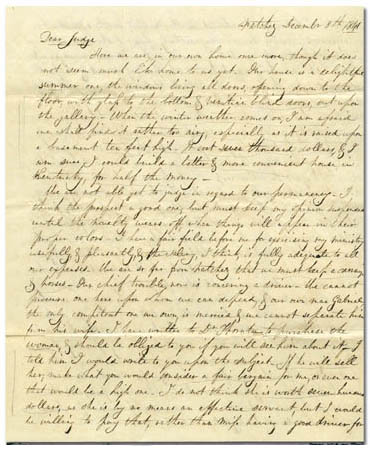 Natchez December 8th 1841
Dear Judge
Here we are in our own home once more, though it does
not seem much like home to us yet. Our house is a delightful
summer one, the windows being all doors, opening down to the
floor, with glass to the bottom & venetian blind doors, out upon
the gallery – When the winter weather comes on, I am afraid
we shall find it rather too airy, especially as it is raised upon
a basement ten feet high. It cost seven thousand dollars, & I
am sure, I could build a better & more convenient house in
Kentucky for half the money –
We are not able yet to judge in regard to our permanency. I
think the prospect a good one, but must keep my opinion suspended
until the novelty wears off when things will appear in their
proper colors. I have a fair field before me for exercising my ministry
usefully & pleasantly, & the salary, I think, is fully adequate to all
our expenses. We are so far from Natchez that we must keep a carriage
& horses – Our chief trouble, now is concerning a driver. We cannot
procure one here upon whom we can depend, & our own man Gabriel
the only competent one we own, is married & we cannot separate him
from his wife. I have written to Dr to purchase the
woman, & should be obliged to you if you will see him about it. I
told him I would write to you upon the subject. If he will sell
her, make what you would consider a fair bargain for me, or even one
that would be a high one. I do not think she is worth seven hundred
dollars, as she is by no means an effective servant, but I would
be willing to pay that, rather than miss having a good driver, for